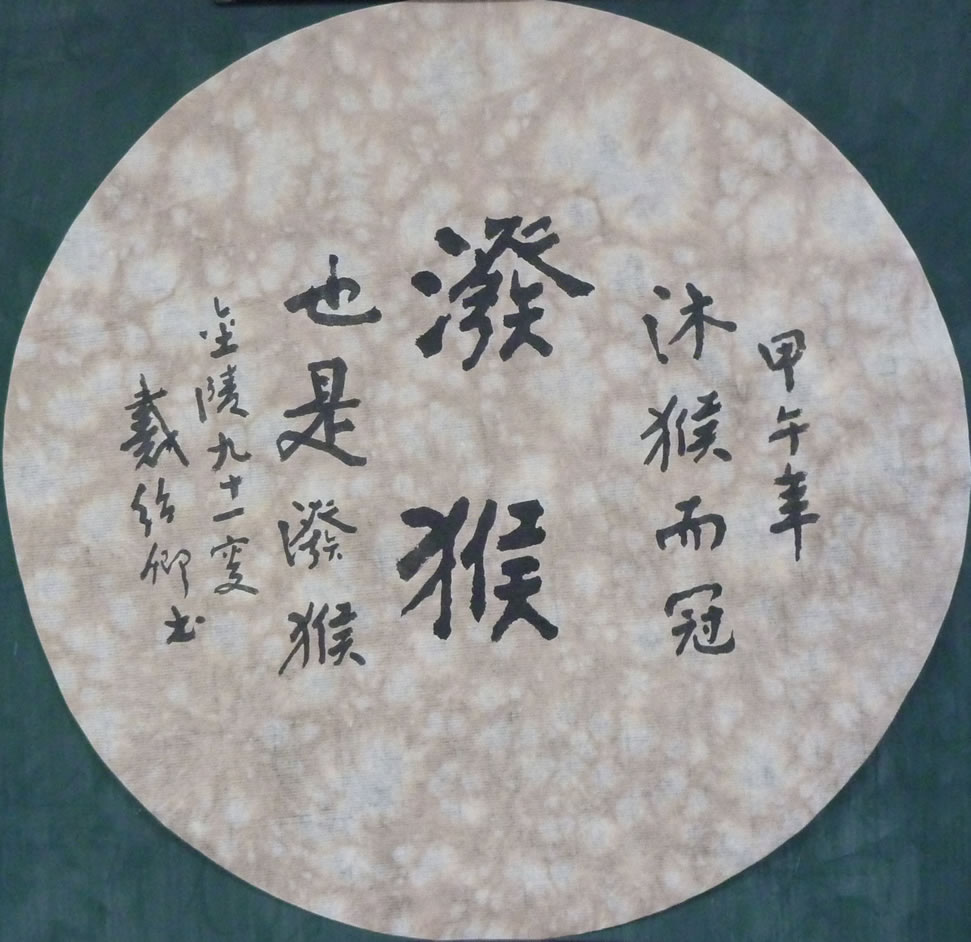 甲午年
沐猴而冠
潑猴
也是潑猴
金陵九十一叟
戴紹卿书